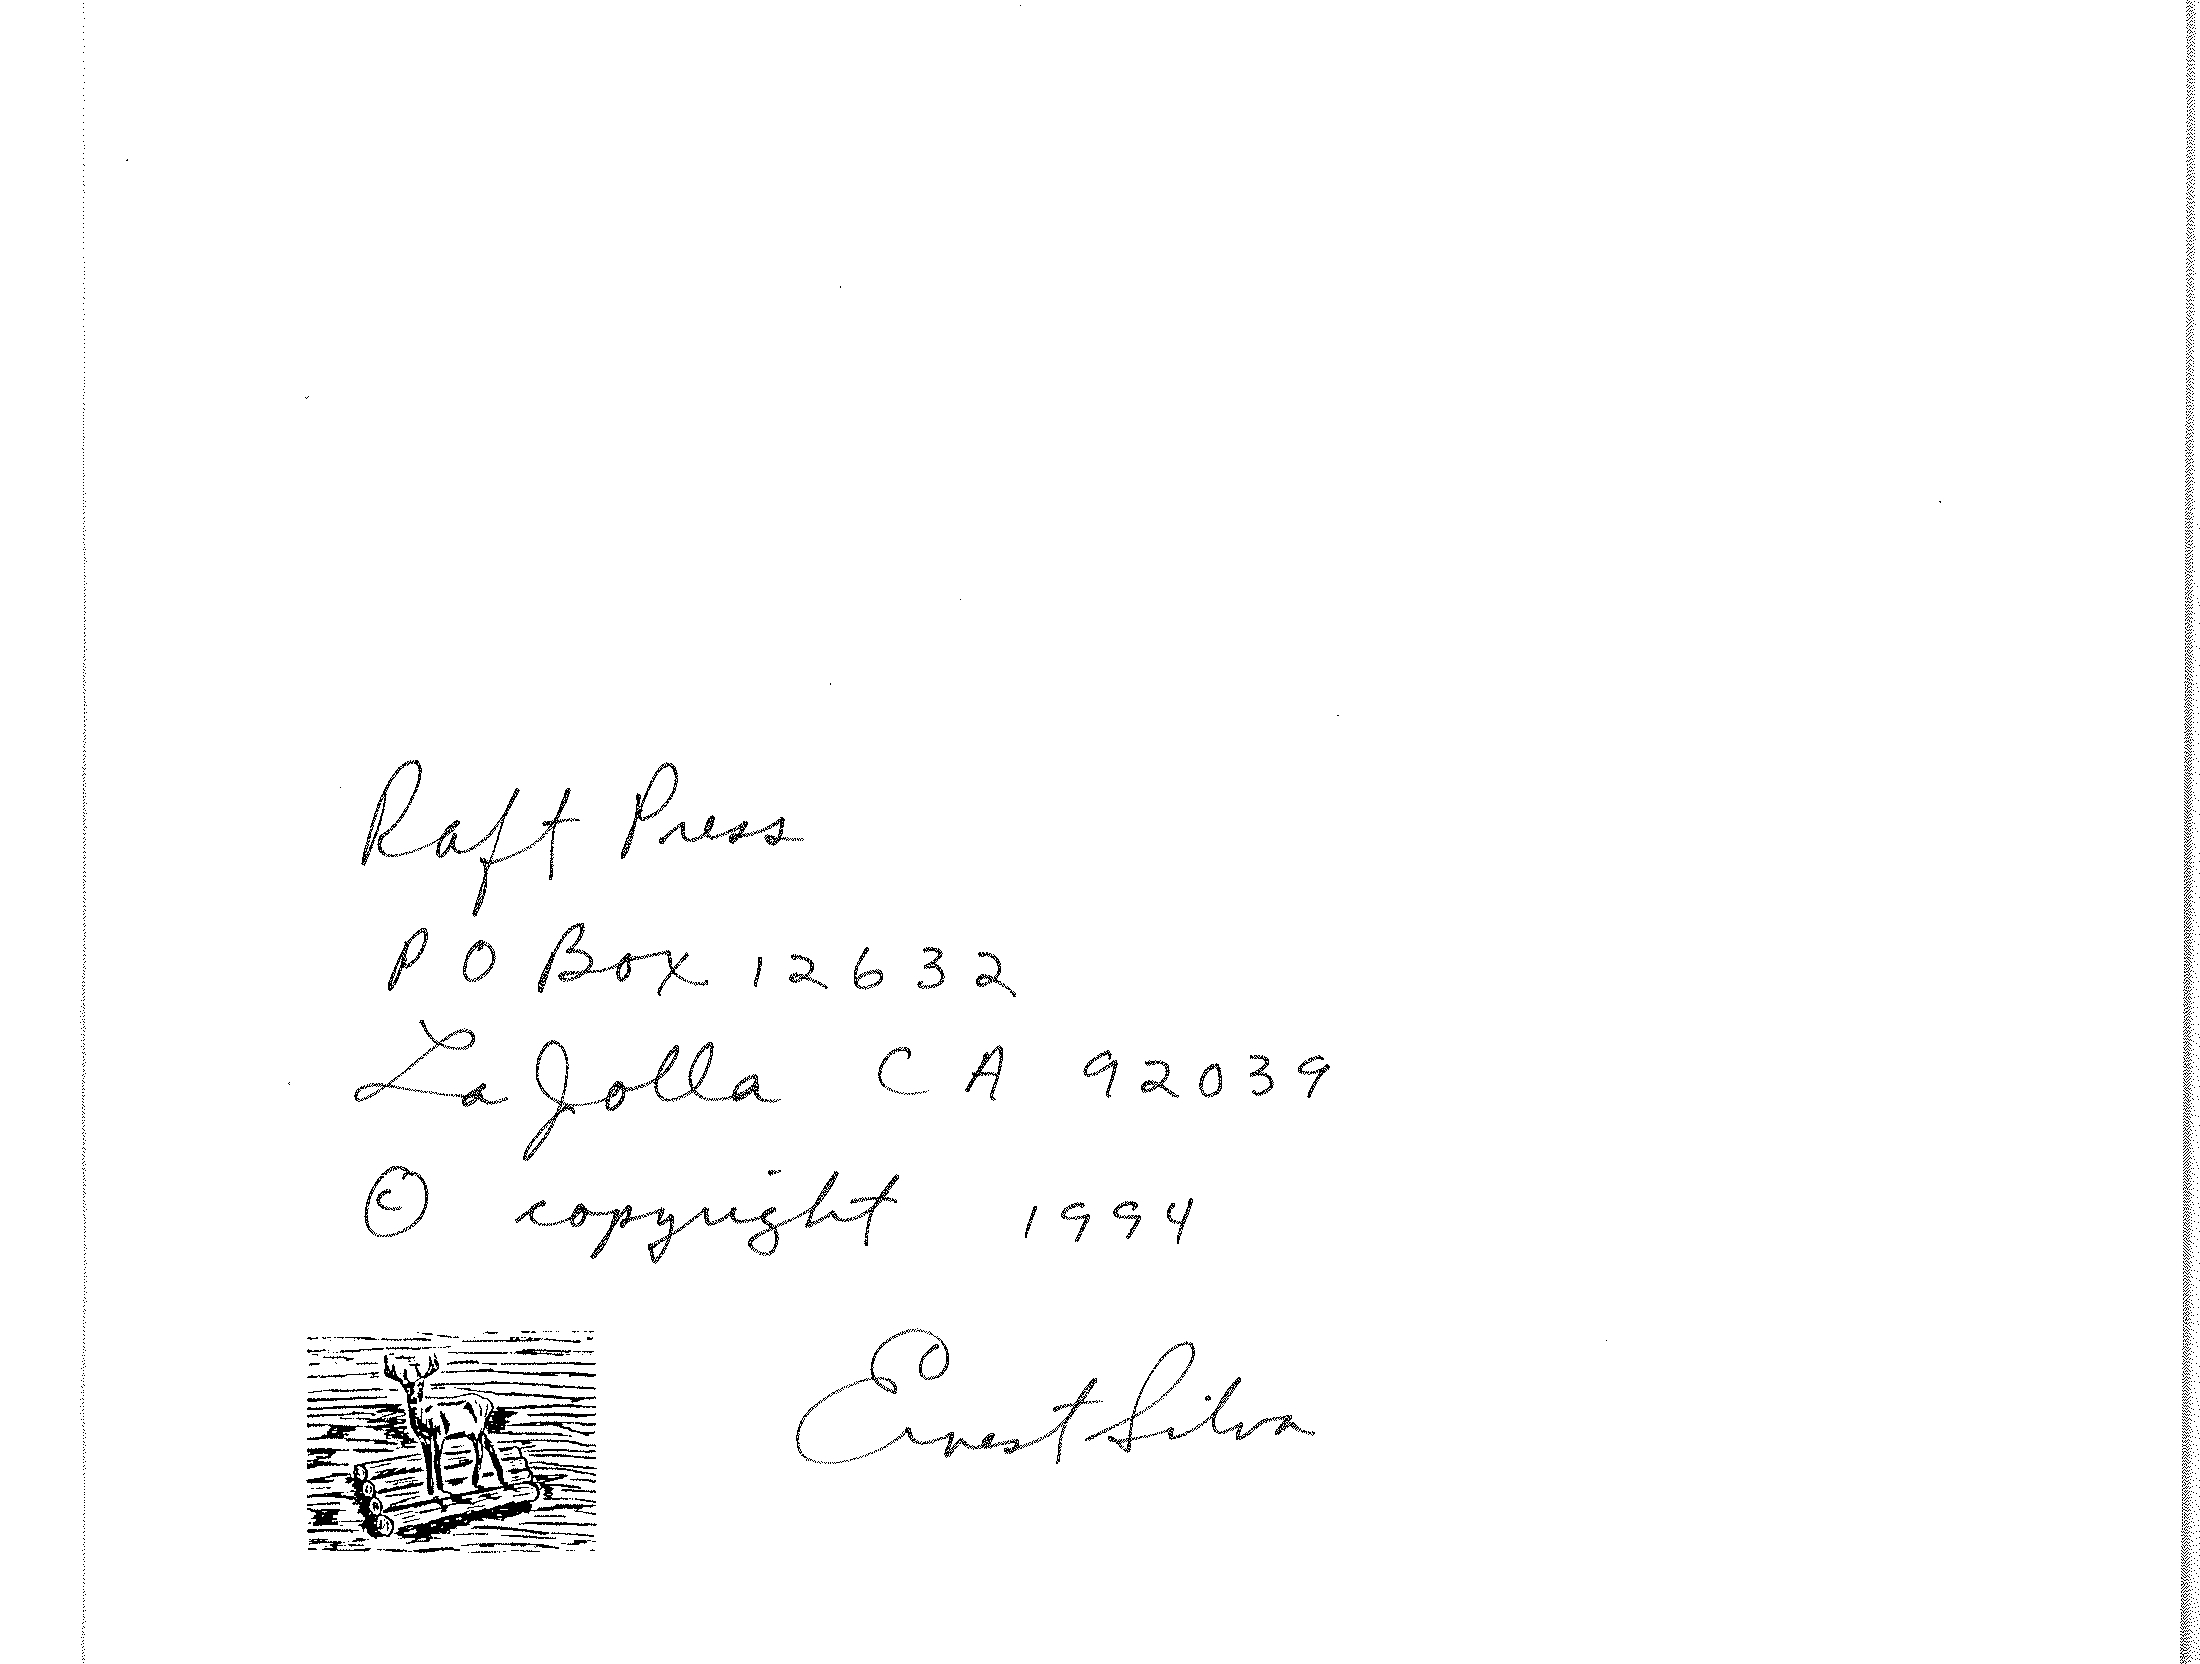 Raft Press
P O Box 12632
La Jolla CA 92039
© copyright 1994
Ernest Silva